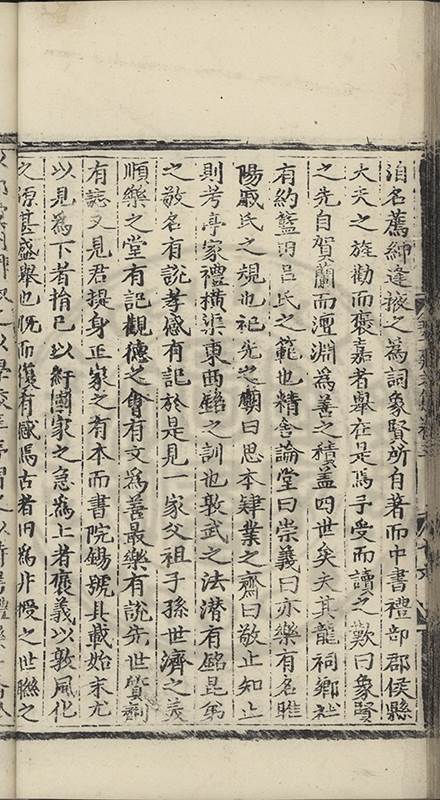 洎名薦紳逢掖之爲詞象賢所自著而中書禮部郡侯縣
大夫之旌勸而褒嘉者舉在是焉予受而讀之歎曰象賢
之先自賀蘭而澶淵爲善之積蓋四世矣夫其龍祠鄉社
有約藍田呂氏之範也精舍論堂曰崇義曰亦樂有名睢
陽戚氏之規也祀先之廟曰思本肄業之齋曰敬止知止
則考亭家禮橫渠東西銘之訓也敦武之法潛有銘昆弟
之敬名有說孝感有記於是見一家父祖子孫世濟之美
順樂之堂有記觀德之會有文爲善最樂有說先世質劑
有誌又見君提身正家之有本而書院錫號具載始末尤
以見爲下者捨己以紓國家之急爲上者褒義以敦風化
之源甚盛舉也旣而復有感焉古者田爲井授之世聯之